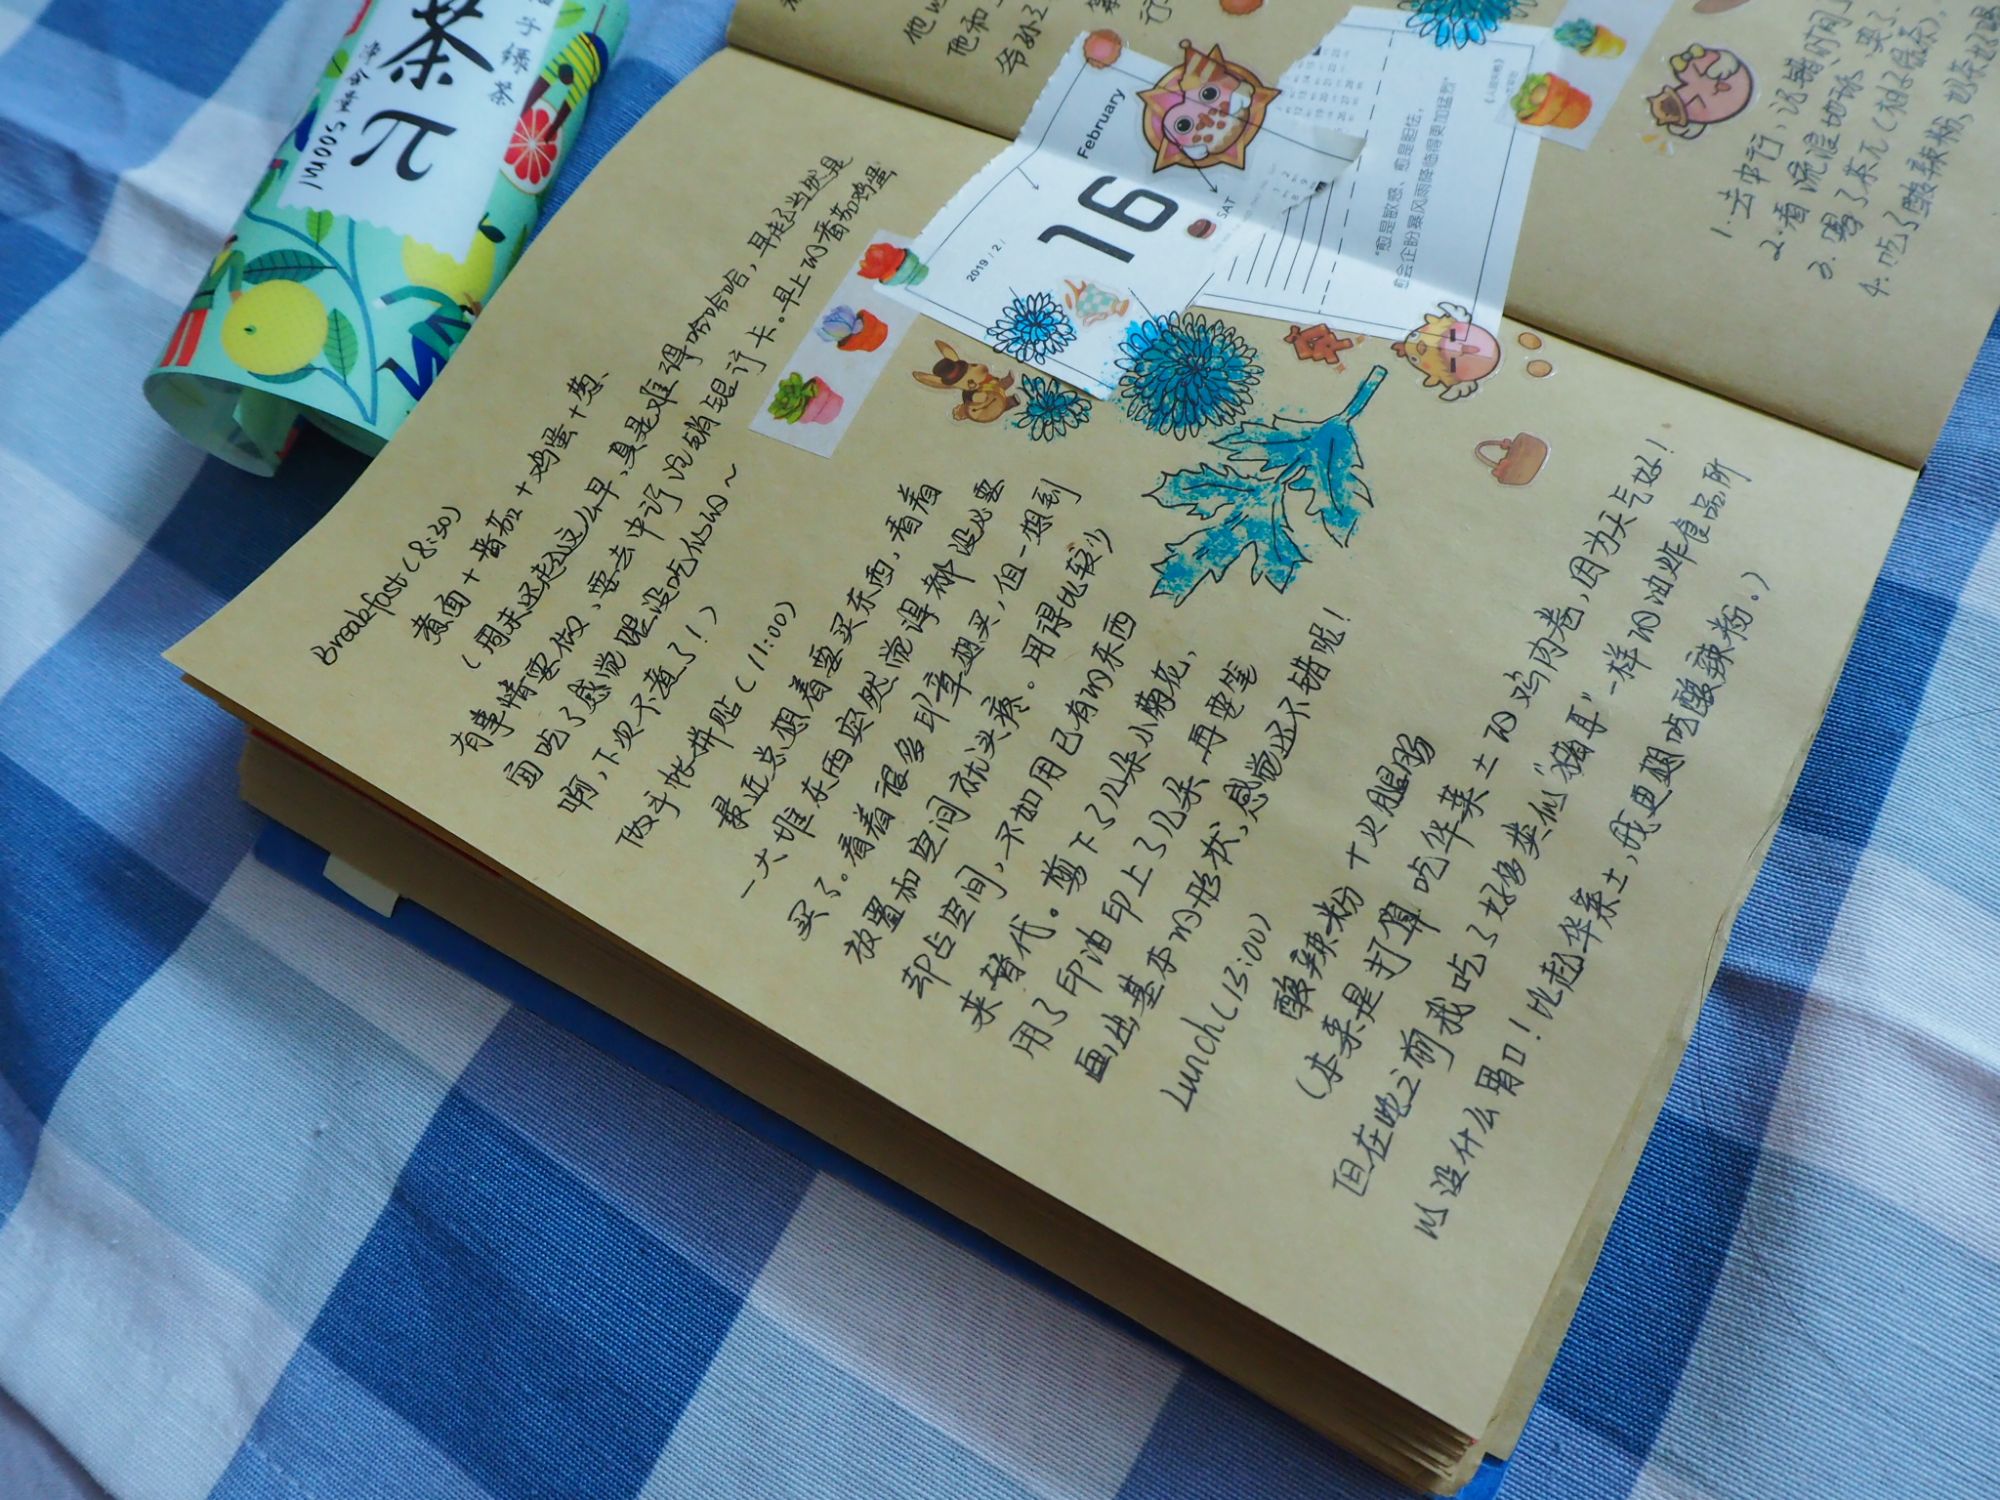 茶
π
柚子绿茶
净含量
500ml
他和
爷孙
February
16
SAT
2019 / 2 /
“愈是敏感、愈是胆怯,
愈会企盼暴风雨降临得更加猛烈”
《人间失格》
太宰治
1.去中行,
2.看流浪地球,哭了.
3.喝了茶π(柚子绿茶),
4.吃了酸辣粉,
Breakfast(8:30)
煮面+番茄+鸡蛋+葱、
(周末还起这么早,真是难得哈哈哈哈,早起当然是
有事情要做,要去中行注销银行卡。早上的番茄鸡蛋
面吃了感觉跟没吃似的~
啊,下次不煮了!)
做手帐拼贴(11:00)
最近总想着要买东西,看着
一大堆东西突然觉得都没必要
买了。看着很多印章想买,但一想到
放置和空间就头疼。用得比较少
却占空间,不如用已有的东西
来替代。剪下了几朵小菊花,
用了印油印上了几朵,再要笔
画出基本的形状,感觉还不错呢!
Lunch(13:00)
酸辣粉+火腿肠
(本来是打算吃华莱士的鸡肉卷,因为天气好!
但在吃之前我吃了好多类似“猪耳”一样的油炸食品所
以没什么胃口!比起华莱士,我更想吃酸辣粉。)